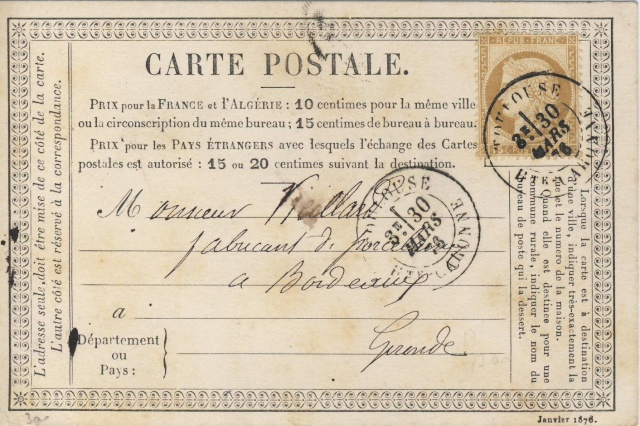 CARTE POSTALE.
PRIX pour la FRANCE et l'ALGÉRIE : 10 centimes pour la même ville
ou la circonscription du même bureau ; 15 centimes de bureau à bureau.
PRIX pour les PAYS ÉTRANGERS avec lesquels l'échange des Cartes
postales est autorisé : 15 ou 20 centimes suivant la destination.
Monsieur Vieillard
fabricant de porcelaine
a Bordeaux
à
Département
ou
Pays :
Gironde
L'adresse seule doit être mise de ce côté de la carte.
L'autre côté est réservé à la correspondance.
Lorsque la carte est à destination
d'une ville, indiquer très-exactement la
rue et le numéro de la maison.
Quand elle est destinée pour une
commune rurale, indiquer le nom du
bureau de poste qui la dessert.
REPUB. FRANC.
TOULOUSE
30
MARS
76
TOULOUSE
30
MARS
76
Janvier 1876.